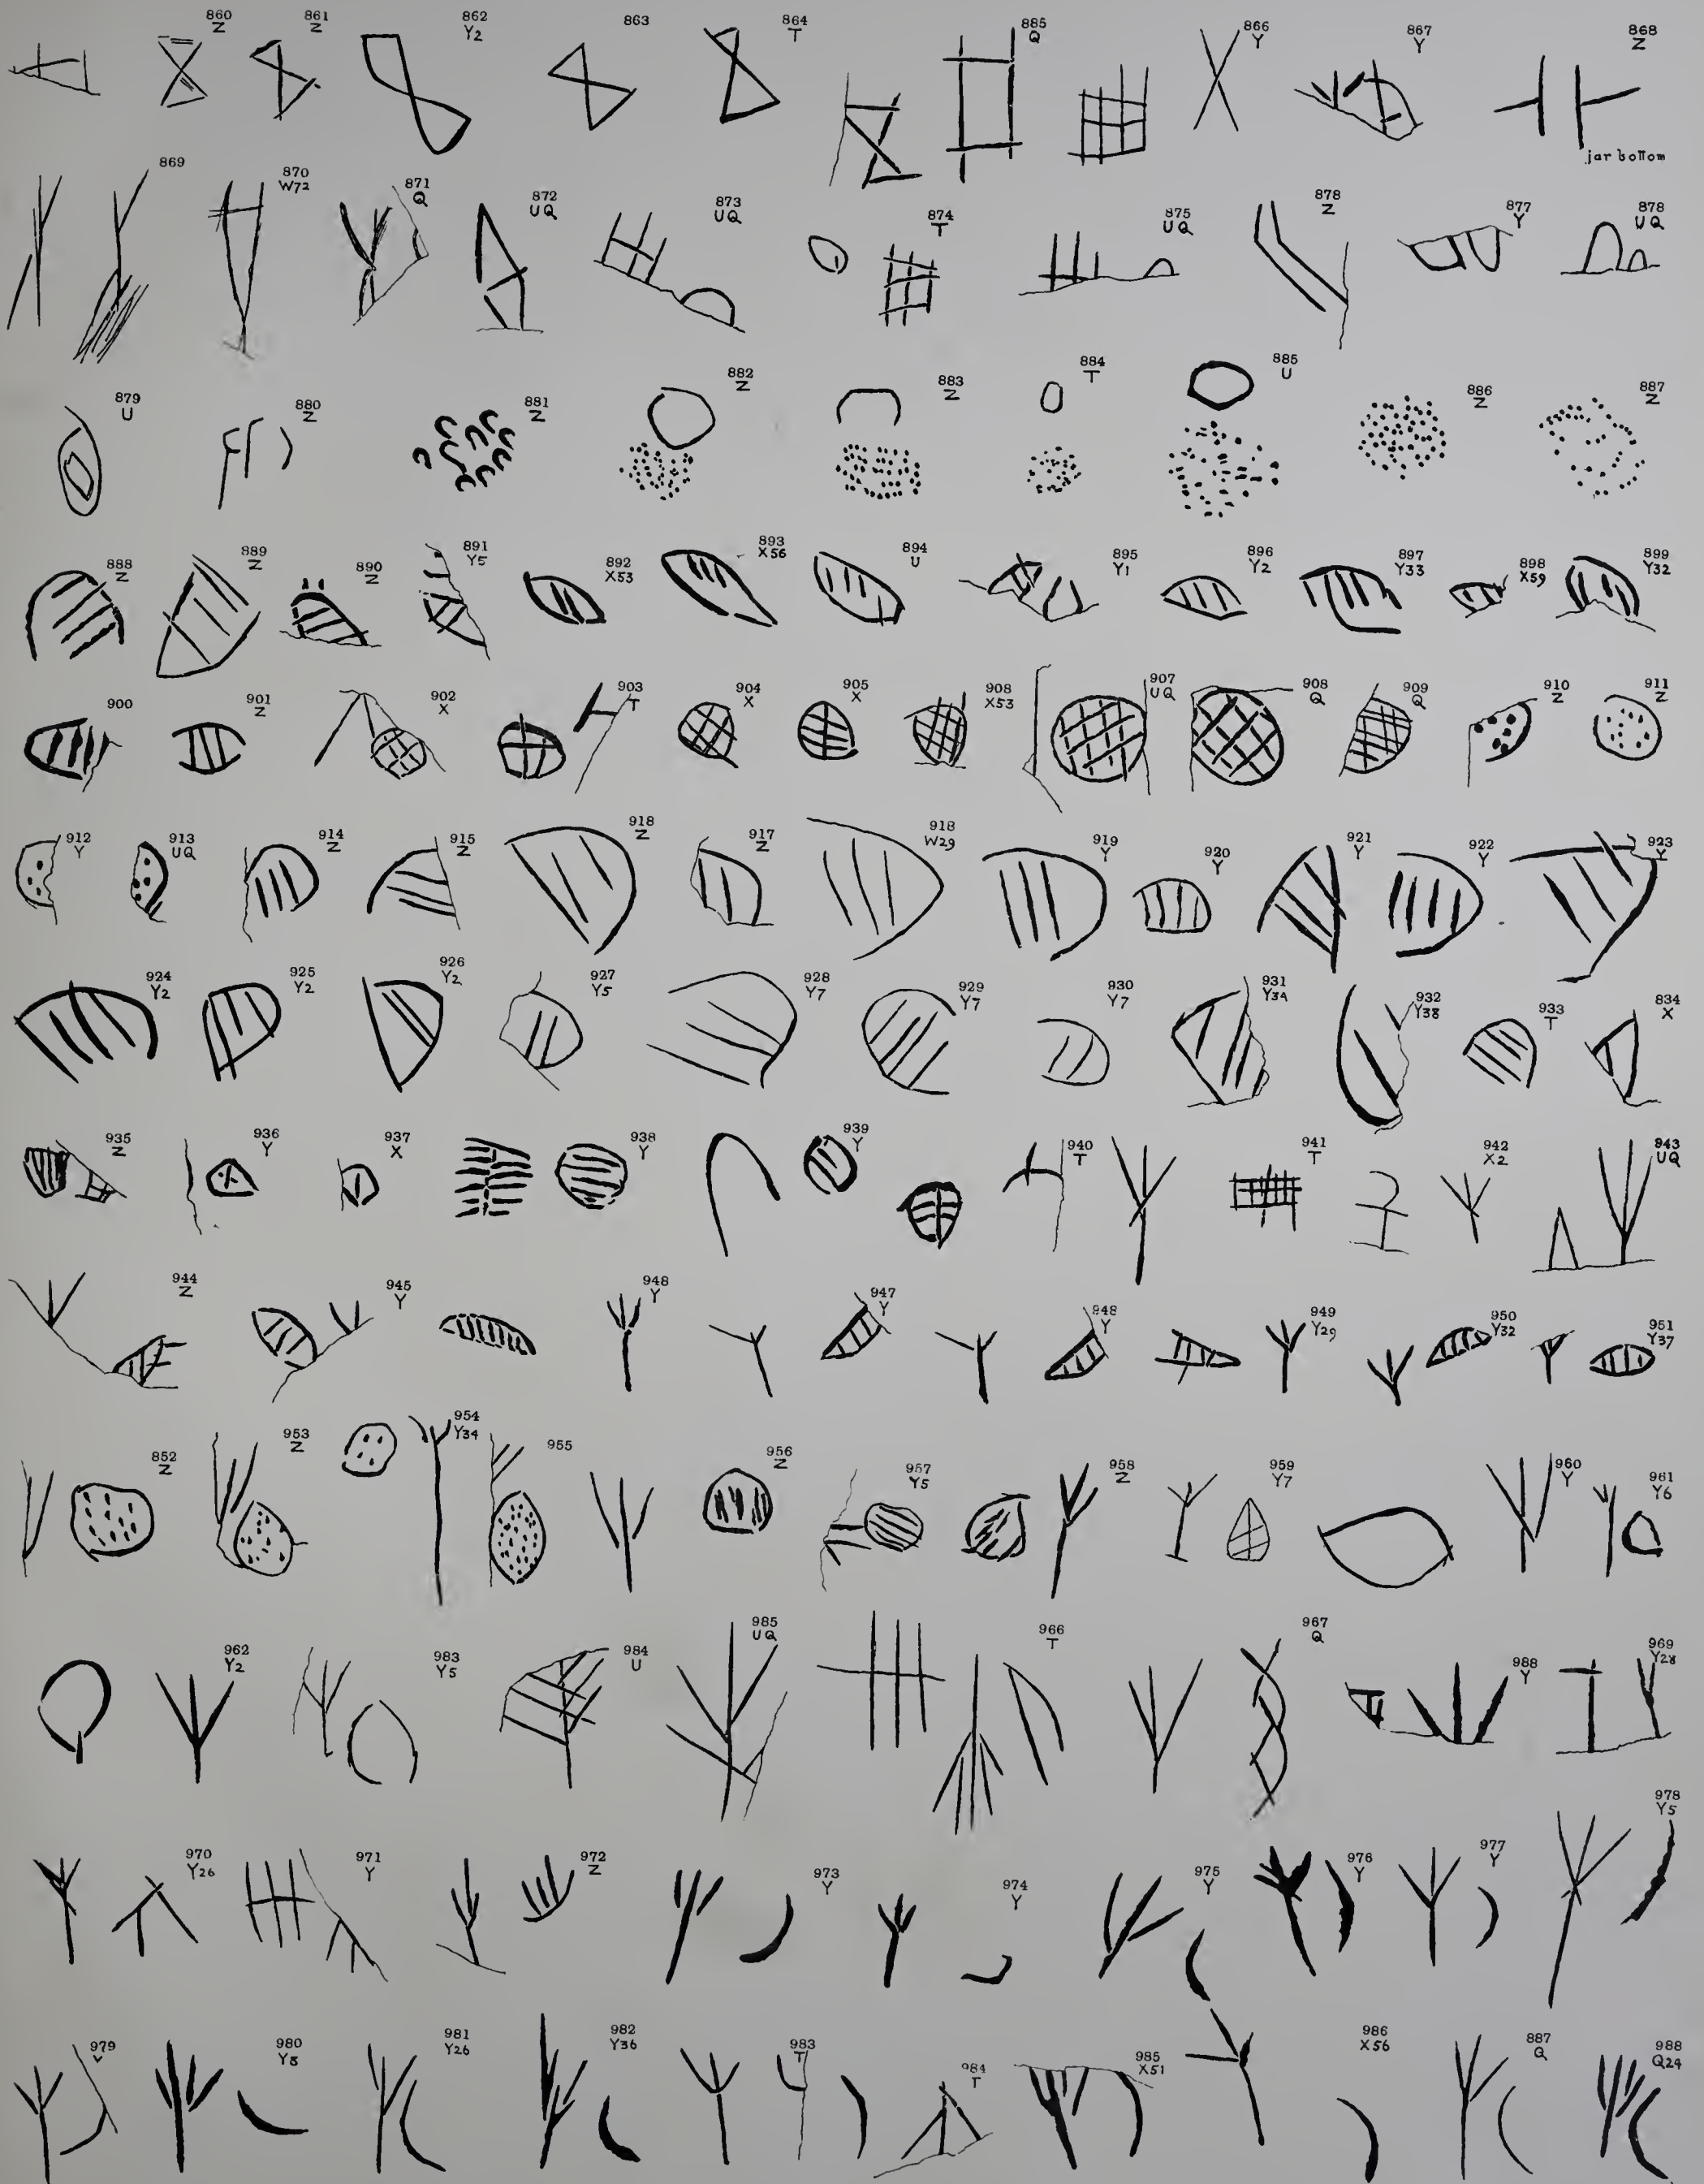 860 Z 861 Z 862 Y2 863 864 T 885 Q 866 Y 867 Y 868 Z
jar bottom
869 870 W72 871 Q 872 UQ 873 UQ 874 T 875 UQ 878 Z 877 Y 878 UQ
879 U 880 Z 881 Z 882 Z 883 Z 884 T 885 U 886 Z 887 Z
888 Z 889 Z 890 Z 891 Y5 892 X53 893 X56 894 U 895 Y1 896 Y2 897 Y33 898 X59 899 Y32
900 901 Z 902 X 903 T 904 X 905 X 908 X53 907 UQ 908 Q 909 Q 910 Z 911 Z
912 Y 913 UQ 914 Z 915 Z 918 Z 917 Z 918 W29 919 Y 920 Y 921 Y 922 Y 923 Y
924 Y2 925 Y2 926 Y2 927 Y5 928 Y7 929 Y7 930 Y7 931 Y34 932 Y38 933 T 834 X
935 Z 936 Y 937 X 938 Y 939 Y 940 T 941 T 942 X2 943 UQ
944 Z 945 Y 948 Y 947 Y 948 Y 949 Y29 950 Y32 951 Y37
852 Z 953 Z 954 Y34 955 956 Z 957 Y5 958 Z 959 Y7 960 Y 961 Y6
962 Y2 983 Y5 984 U 985 UQ 966 T 967 Q 988 Y 969 Y28
970 Y26 971 Y 972 Z 973 Y 974 Y 975 Y 976 Y 977 Y 978 Y5
979 980 Y8 981 Y26 982 Y36 983 T 984 T 985 X51 986 X56 887 Q 988 Q24